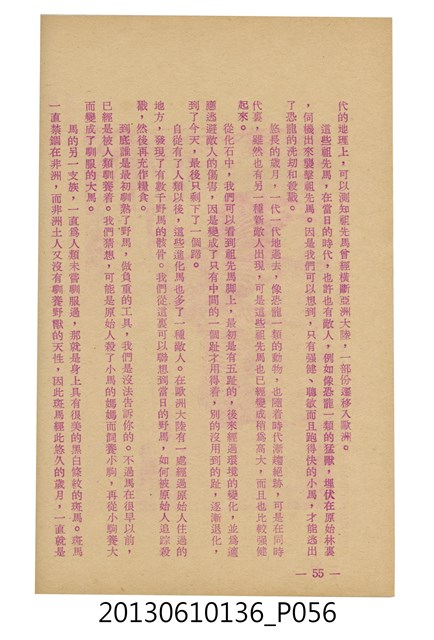 代的地理上，可以測知祖先馬曾經橫斷亞洲大陸，一部份遷移入歐洲。
這些祖先馬，在當日的時代，也許也有敵人，例如像恐龍一類的猛獸，埋伏在原始林裏
，伺機出來襲擊祖先馬。因是我們可以想到，只有強健、聰敏而且跑得快的小馬，才能逃出
了恐龍的洗刧和殺戮。
悠長的歲月，一代一代地過去，像恐龍一類的動物，也隨着時代漸趨絕跡，可是在同時
代裏，雖然也有另一種新敵人出現，可是這些祖先馬也已經變成稍爲高大，而且也比較強健
起來。
從化石中，我們可以看到祖先馬脚上，最初是有五趾的，後來經過環境的變化，並爲適
應逃避敵人的傷害，因是變成了只有中間的一個趾才用得着，別的沒用到的趾，逐漸退化，
到了今天，最後只剩下了一個蹄。
自從有了人類以後，這些進化馬也多了一種敵人。在歐洲大陸有一處經過原始人住過的
地方，發現了有數千野馬的骸骨。我們從這裏可以聯想到當日的野馬，如何被原始人追踪殺
戮，然後再充作糧食。
到底誰是最初馴熟了野馬，做負重的工具，我們是沒法告訴你的。不過馬在很早以前，
已經是被人類馴養着。我們猜想，可能是原始人殺了小馬的媽媽而飼養小駒，再從小馴養大
而變成了馴服的大馬。
馬的另一支族，一直爲人類未嘗馴服過，那就是身上具有很美的黑白條紋的斑馬。斑馬
一直禁錮在非洲，而非洲土人又沒有馴養野獸的天性，因此斑馬經此悠久的歲月，一直就是
— 55 —
20130610136_P056